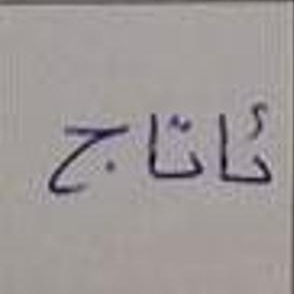 ئاتاج